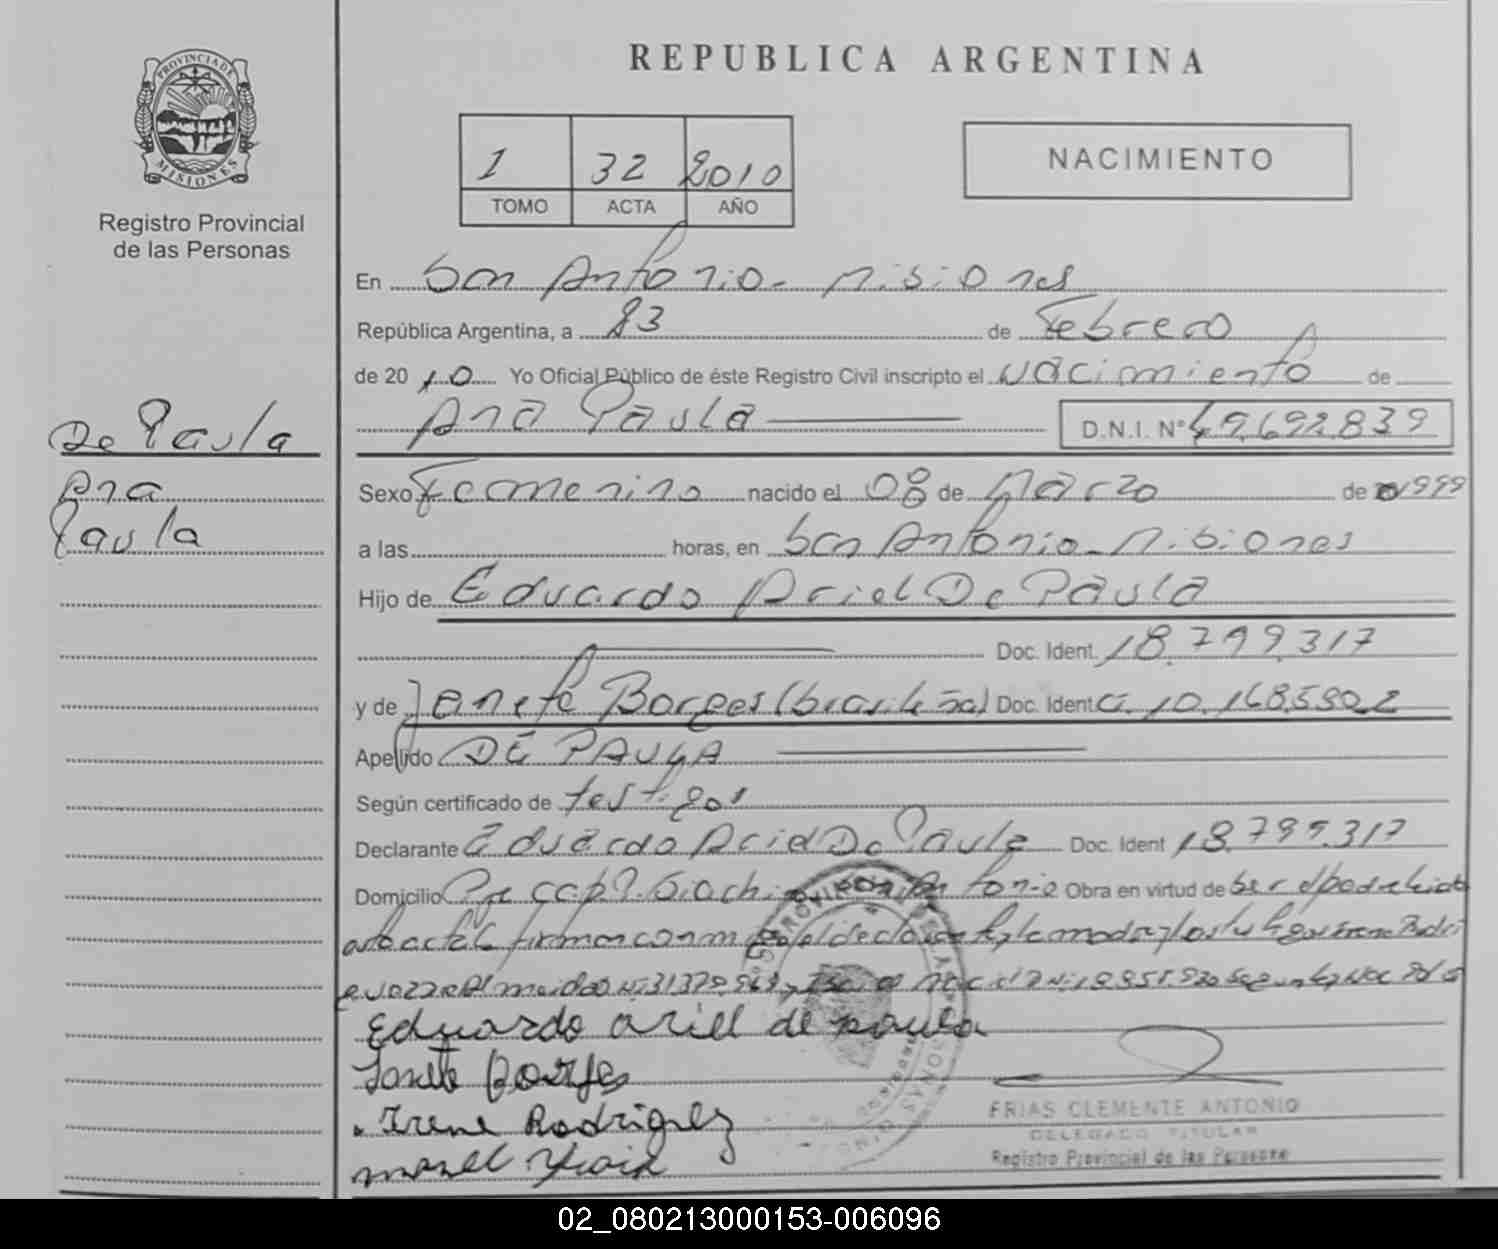 PROVINCIA DE
MISIONES
Registro Provincial
de las Personas
De Paula
Ana
Paula
REPUBLICA ARGENTINA
1 32 2010
TOMO ACTA AÑO
NACIMIENTO
En San Antonio - Misiones
República Argentina, a 23 de Febrero
de 20 10 Yo Oficial Público de éste Registro Civil inscripto el Nacimiento de
Ana Paula D.N.I. Nº 49.692.839
Sexo Femenino nacido el 08 de Marzo de 1999
a las horas, en San Antonio - Misiones
Hijo de Eduardo Ariel De Paula
Doc. Ident. 18.799.317
y de Janete Borges (brasileña) Doc. Ident C.I. 10.168.590.2
Apellido DE PAULA
Según certificado de testigos
Declarante Eduardo Ariel De Paula Doc. Ident 18.799.317
Domicilio San Antonio Obra en virtud de ser
esta acta firman conmigo el declarante, la madre y los testigos Irene Rodri
guez
Eduardo ariel de paula
Janete Borges
Irene Rodriguez
FRIAS CLEMENTE ANTONIO
DELEGADO TITULAR
Registro Provincial de las Persona
02_080213000153-006096